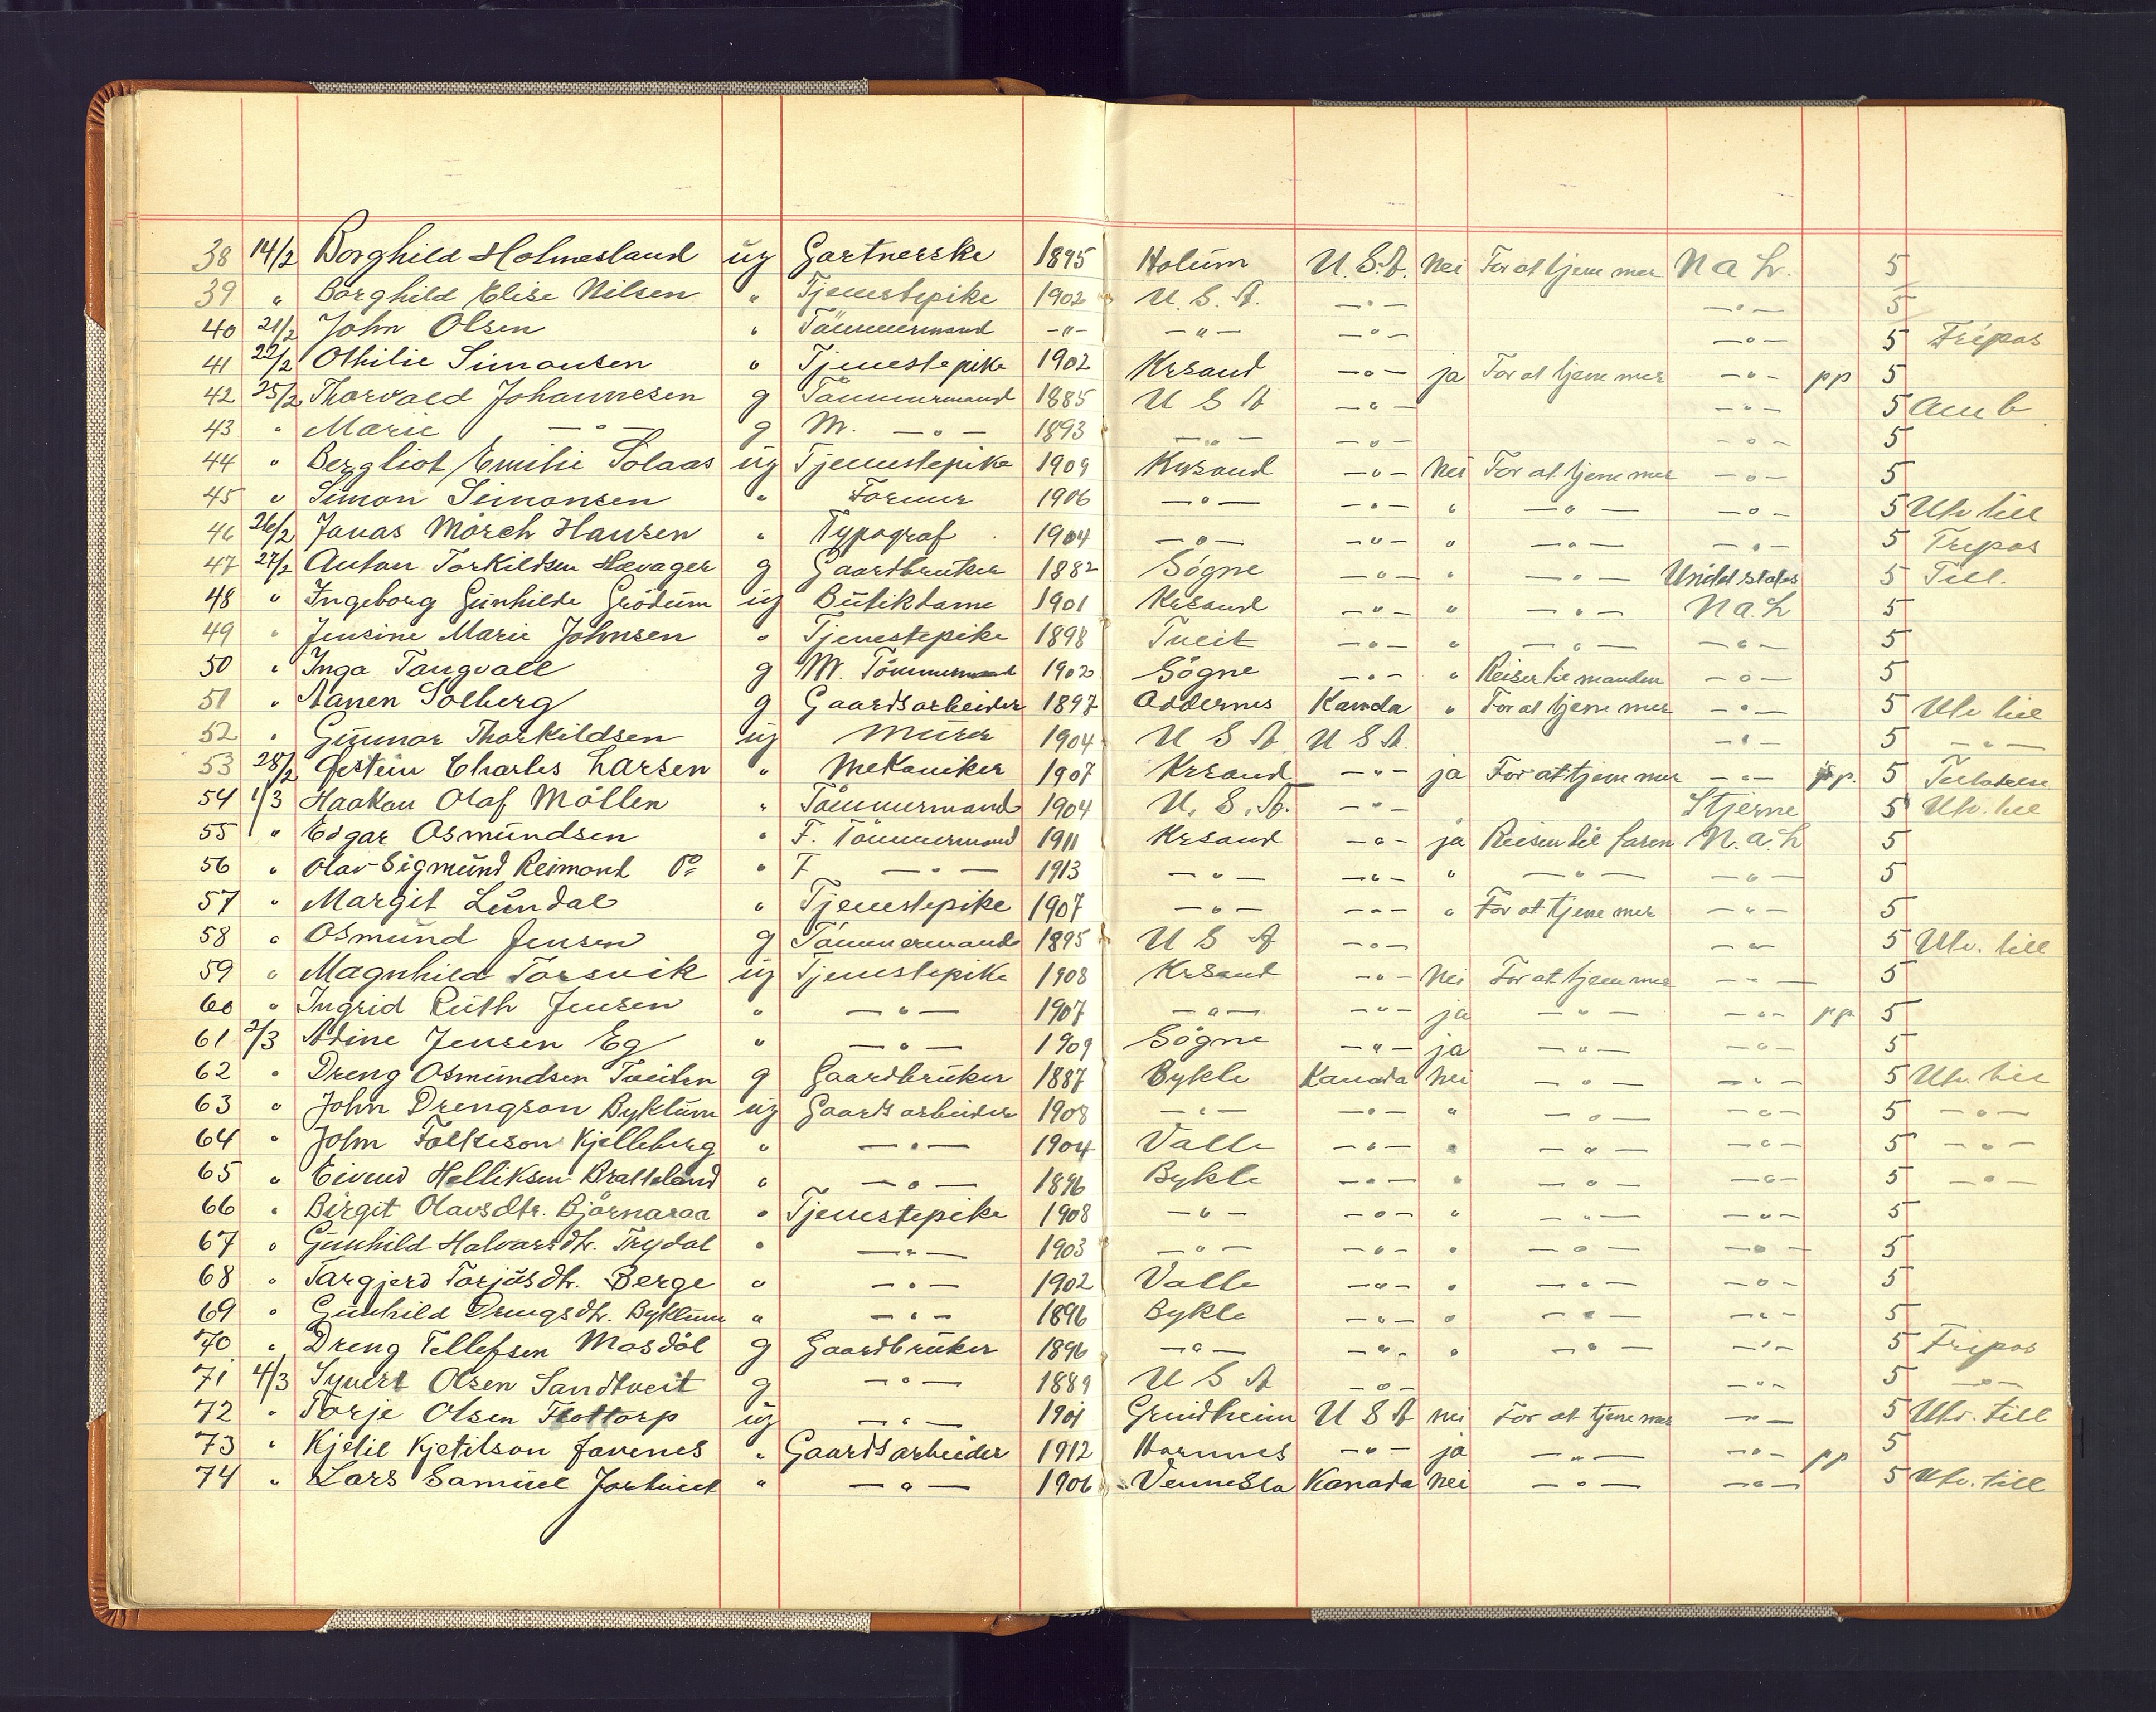 38 14/2 Borghild Holmesland ug Gartnerske 1895 Holum U.S.A. Nei For at tjene mer N a L. 5
39 " Borghild Elise Nilsen " Tjenestepike 1902 U.S.A. —"— —"— 5
40 21/2 John Olsen " Tömmermand —"— —"— —"— —"— 5 Fripas
41 22/2 Othilie Simonsen " Tjenestepike 1902 Krsand —"— ja For at tjene mer —"— pp 5
42 25/2 Thorvald Johannesen g Tömmermand 1885 U S A —"— —"— 5 Amb
43 " Marie —"— g M. —"— 1893 —"— —"— —"— 5
44 " Bergliot Emilie Solaas ug Tjenestepike 1909 Krsand —"— Nei For at tjene mer —"— 5
45 " Simon Simonsen " Former 1906 —"— —"— " —"— —"— 5 Utv till
46 26/2 Jonas Mörch Hansen " Typograf 1904 —"— —"— " —"— —"— 5 Fripas
47 27/2 Anton Torkildsen Hævager g Gaardbruker 1882 Sögne —"— " —"— Unidet states 5 Till.
48 " Ingeborg Gunhilde Grödum ug Butikdame 1901 Krsand —"— " —"— N a. L 5
49 " Jensine Marie Johnsen " Tjenestepike 1898 Tveit —"— " —"— —"— 5
50 " Inga Tangvall g M. Tömmermand 1902 Sögne —"— " Reiser til manden —"— 5
51 " Aanen Solberg g Gaardsarbeider 1897 Oddernes Kanada " For at tjene mer —"— 5 Utv till
52 " Gunnar Thorkildsen ug Murer 1904 U S A U S A. —"— 5 —"—
53 28/2 Östein Charles Larsen " Mekaniker 1907 Krsand —"— ja For at tjene mer —"— pp. 5
54 1/3 Haakon Olaf Möllen " Tömmermand 1904 U.S.A. —"— Stjerne 5 Utv. till
55 " Edgar Osmundsen " F. Tömmermand 1911 Krsand —"— ja Reisen til faren N. a. L 5
56 " Olav Sigmund Reimont Do " F —"— 1913 —"— —"— " —"— —"— 5
57 " Margit Lundal " Tjenestepike 1907 —"— —"— " For at tjene mer —"— 5
58 " Osmund Jensen g Tömmermand 1895 U S A —"— —"— 5 Utv. till
59 " Magnhild Torsvik ug Tjenestepike 1908 Krsand —"— Nei For at tjene mer —"— 5
60 " Ingrid Ruth Jensen " —"— 1907 —"— —"— ja —"— —"— pp 5
61 2/3 Adine Jensen Eg " —"— 1909 Sögne —"— ja —"— —"— 5
62 " Dreng Osmundsen Tveiten g Gaardbruker 1887 Bykle Kanada Nei —"— —"— 5 Utv. till
63 " John Drengson Byklum ug Gaardsarbeider 1908 —"— —"— " —"— —"— 5 —"—
64 " John Folkeson Kjelleberg " —"— 1904 Valle —"— " —"— —"— 5 —"—
65 " Eivind Helliksen Bratteland " —"— 1896 Bykle —"— " —"— —"— 5 —"—
66 " Birgit Olavsdtr. Björnaraa " Tjenestepike 1908 —"— —"— " —"— —"— 5
67 " Gunhild Halvarsdtr. Trydal " —"— 1903 —"— —"— " —"— —"— 5
68 " Targjerd Torjusdtr. Berge " —"— 1902 Valle —"— " —"— —"— 5
69 " Gunhild Drengsdtr. Byklum " —"— 1896 Bykle —"— " —"— —"— 5
70 " Dreng Tellefsen Mosdöl g Gaardbruker 1896 —"— —"— " —"— —"— 5 Fripas
71 4/3 Syvert Olsen Sandtveit g —"— 1889 U S A —"— —"— 5 —"—
72 " Torje Olsen ug —"— 1901 Grindheim U S A nei For at tjene mer —"— 5 Utv. till
73 " Kjetil Kjetilson Favenes " Gaardsarbeider 1912 Hornnes —"— ja —"— —"— pp 5
74 " Lars Samuel " —"— 1906 Vennesla Kanada Nei —"— —"— 5 Utv. till